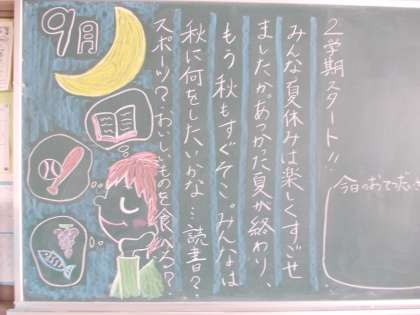 9月
2学期スタート!!
みんな夏休みは楽しくすごせ
ましたか。あつかった夏が終わり、
もう秋もすぐそこ。みんなは
秋に何をしたいかな…読書？
スポーツ？おいしいものを食べる？
今日のおてつだい